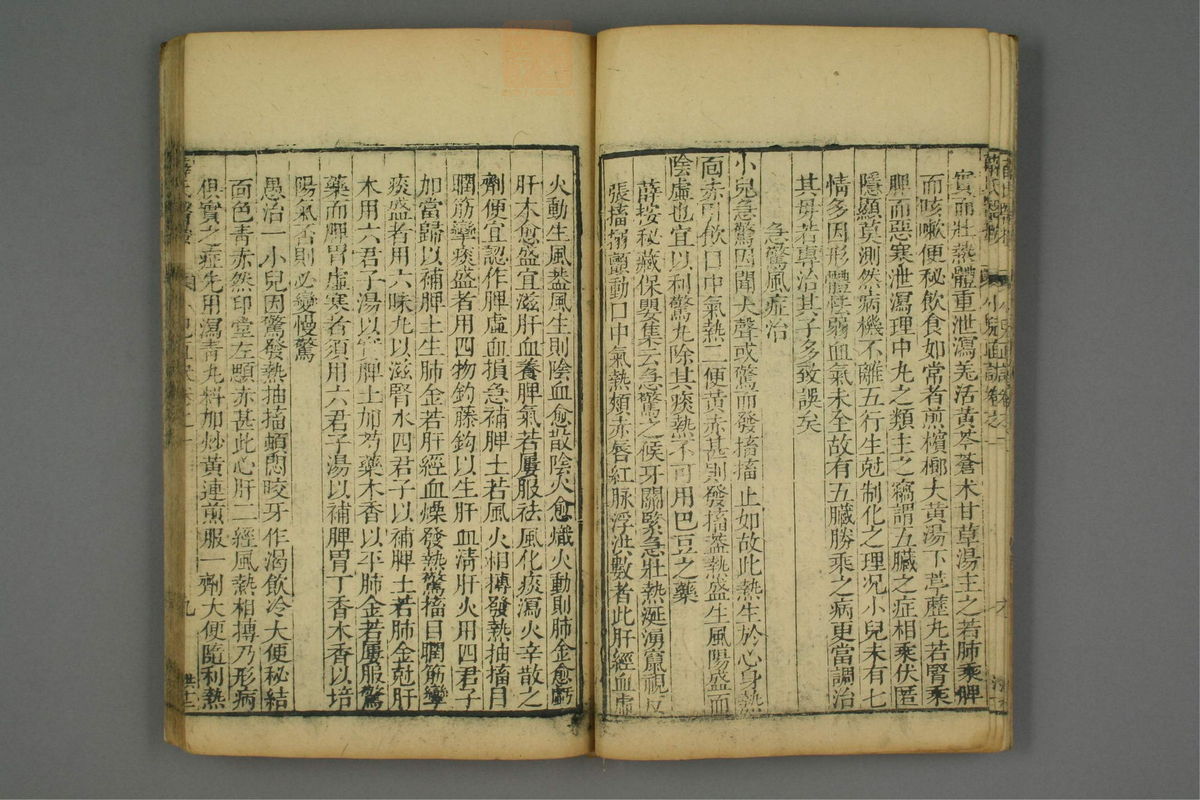 實而壯熱體重泄瀉羌活黃芩蒼木甘草湯主之若肺乘脾
而咳嗽便秘飲食如常者煎檳榔大黃湯下葶藶丸若腎乘
脾而惡寒泄瀉理中丸之類主之竊謂五臟之症相乘伏匿
隱顯莫測然病機不離五行生尅制化之理况小兒未有七
情多因形體怯弱血氣未全故有五臟勝乘之病更當調治
其母若專治其子多致誤矣
急驚風症治
小兒急驚因聞大聲或驚而發搐搐止如故此熱生於心身熱
面赤引飲口中氣熱二便黃赤甚則發搐蓋熱盛生風陽盛而
陰虛也宜以利驚丸除其痰熱不可用巴豆之藥
薛按秘藏保嬰集云急驚之候牙關緊急壯熱涎湧竄視反
張搐搦顫動口中氣熱頰赤唇紅脉浮洪數者此肝經血虛
火動生風葢風生則陰血愈散陰火愈熾火動則肺金愈虧
肝木愈盛宜滋肝血養脾氣若屢服祛風化痰瀉火辛散之
劑便宜認作脾虛血損急補脾土若風火相摶發熱抽搐目
瞤筋攣痰盛者用四物鈎藤鈎以生肝血清肝火用四君子
加當歸以補脾土生肺金若肝經血燥發熱驚搐目瞤筋攣
痰盛者用六味丸以滋腎水四君子以補脾土若肺金尅肝
木用六君子湯以實脾土加芍藥木香以平肺金若屢服驚
藥而脾胃虛寒者須用六君子湯以補脾胃丁香木香以培
陽氣否則必變慢驚
愚治一小兒因驚發熱抽搐頓悶咬牙作渴飲冷大便秘結
面色青赤然印堂左顋赤甚此心肝二經風熱相摶乃形病
俱實之症先用瀉青丸料加炒黃連煎服一劑大便隨利熱
九